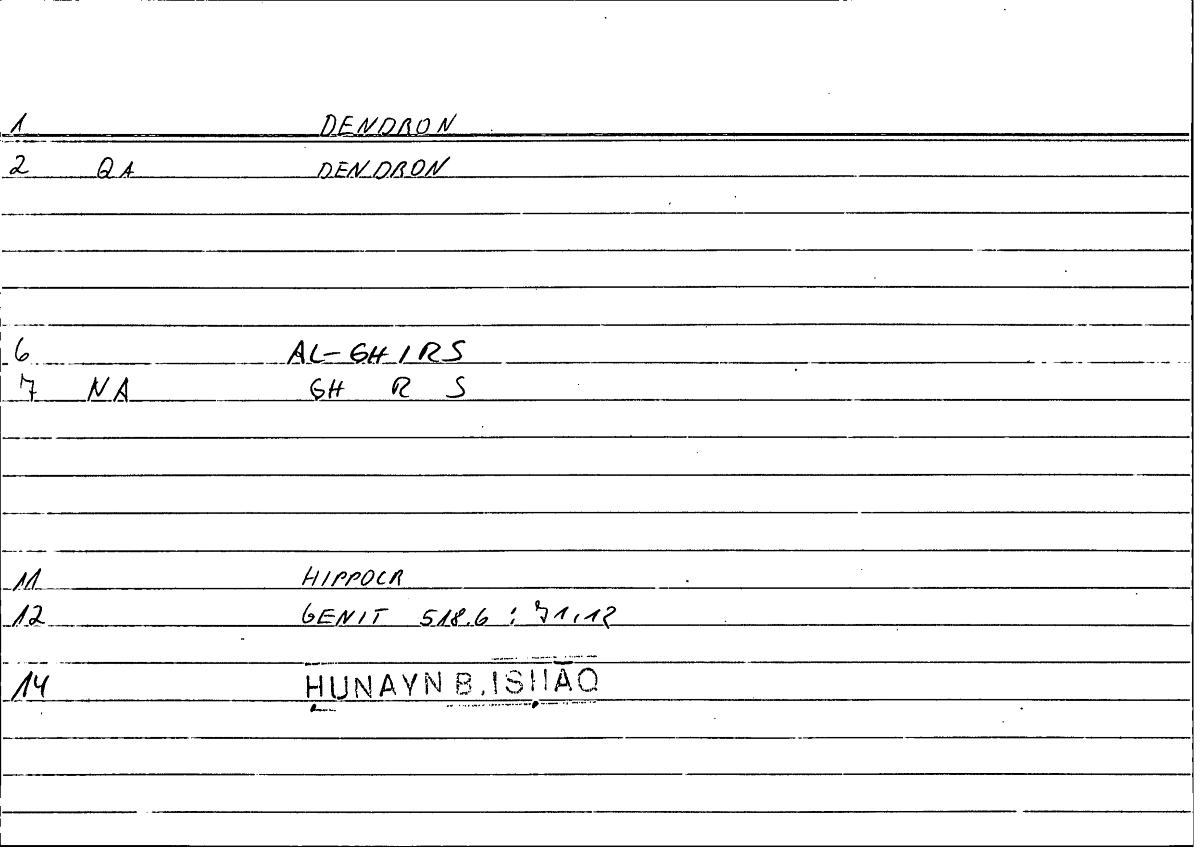 1 DENDRON
2 QA DENDRON
6 AL-GHIRS
7 NA GH R S
11 HIPPOCR
12 GENIT 518.6 : 71,12
14 ḤUNAYN B. ISḤĀQ